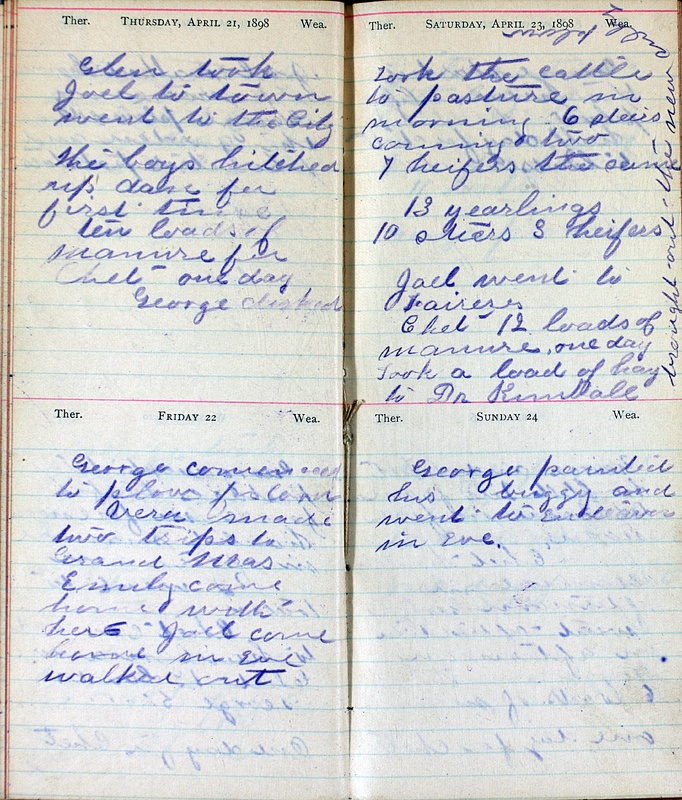 Ther. THURSDAY, APRIL 21, 1898 Wea.
Glen took
Joel to town
went to the City
The boys hitched
up dan for
first time
ten loads of
manure for
Chet one day
George disked
Ther. FRIDAY 22 Wea.
George comenced
to plow
Vera made
two trips to
Grand Mas
Emily came
home with
her Joel come
home in Eve
walked out
Ther. SATURDAY, APRIL 23, 1898 Wea.
Took the cattle
to pasture in
morning 6 steers
coming two
7 heifers the same
13 yearlings
10 stiers 3 heifers
Joel went to
Chet 12 loads of
manure, one day
Took a load of hay
to Dr Kimball
brought out the new
plow
Ther. SUNDAY 24 Wea.
George painted
his buggy and
went to Endeavor
in Eve.